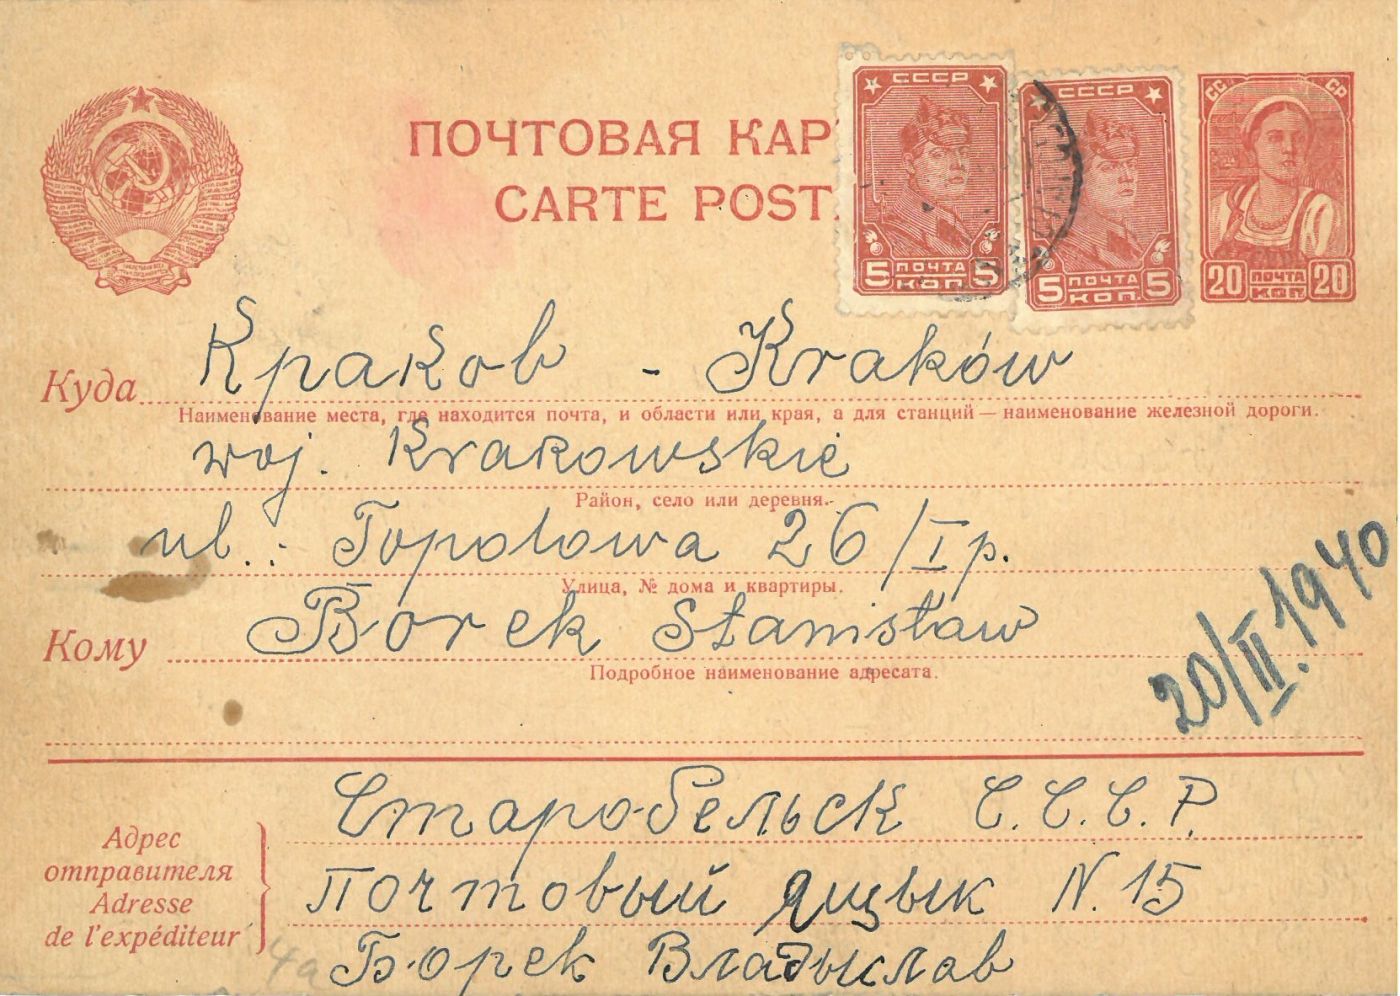 ПОЧТОВАЯ КАР
CARTE POST
СССР
5 ПОЧТА 5
КОП.
СССР
5 ПОЧТА 5
КОП.
СС СР
20 ПОЧТА 20
КОП.
Куда Краков - Kraków
Наименование места, где находится почта, и области или края, а для станций — наименование железной дороги.
woj. Krakowskie
Район, село или деревня.
ul.: Topolowa 26/I p.
Улица, № дома и квартиры.
Кому Borek Stanisław
Подробное наименование адресата.
20/II.1940
Адрес
отправителя
Adresse
de l'expéditeur
Старобельск С.С.С.Р.
Почтовый ящык N. 15
Борек Владыслав
4a